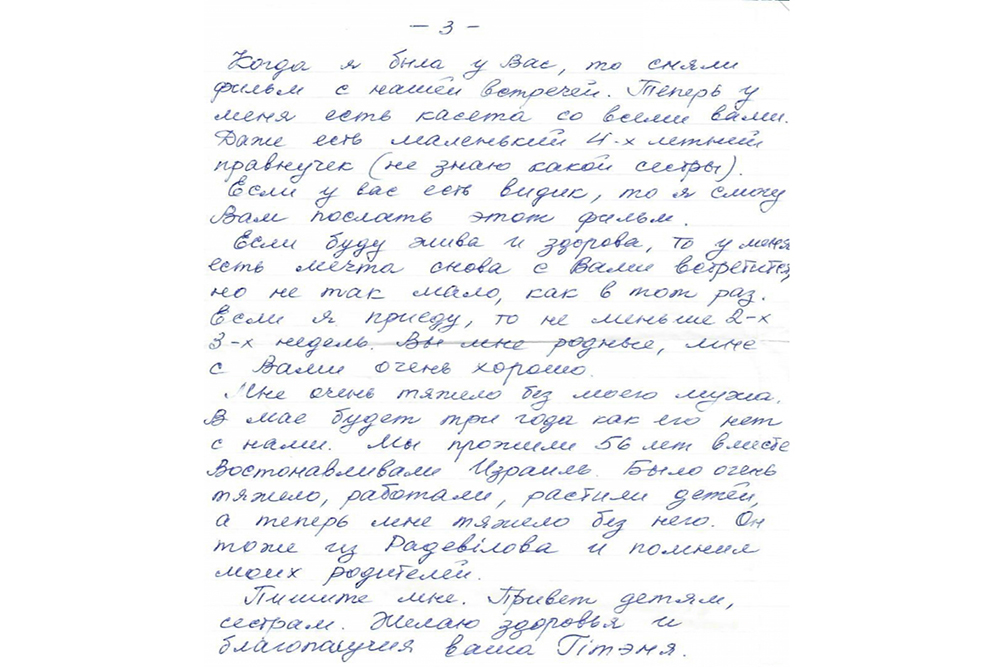 - 3 -
Когда я была у Вас, то сняли
фильм с нашей встречей. Теперь у
меня есть касета со всеми вами.
Даже есть маленький 4-х летний
правнучек (не знаю какой сестры).
Если у вас есть видик, то я смогу
Вам послать этот фильм.
Если буду жива и здорова, то у меня
есть мечта снова с Вами встретится,
но не так мало, как в тот раз.
Если я приеду, то не меньше 2-х
3-х недель. Вы мне родные, мне
с Вами очень хорошо.
Мне очень тяжело без моего мужа.
В мае будет три года как его нет
с нами. Мы прожили 56 лет вместе
Востонавливали Израиль. Было очень
тяжело, работали, растили детей,
а теперь мне тяжело без него. Он
тоже из Радевілова и помнил
моих родителей.
Пишите мне. Привет детям,
сестрам. Желаю здоровья и
благополучия ваша Гітэня.